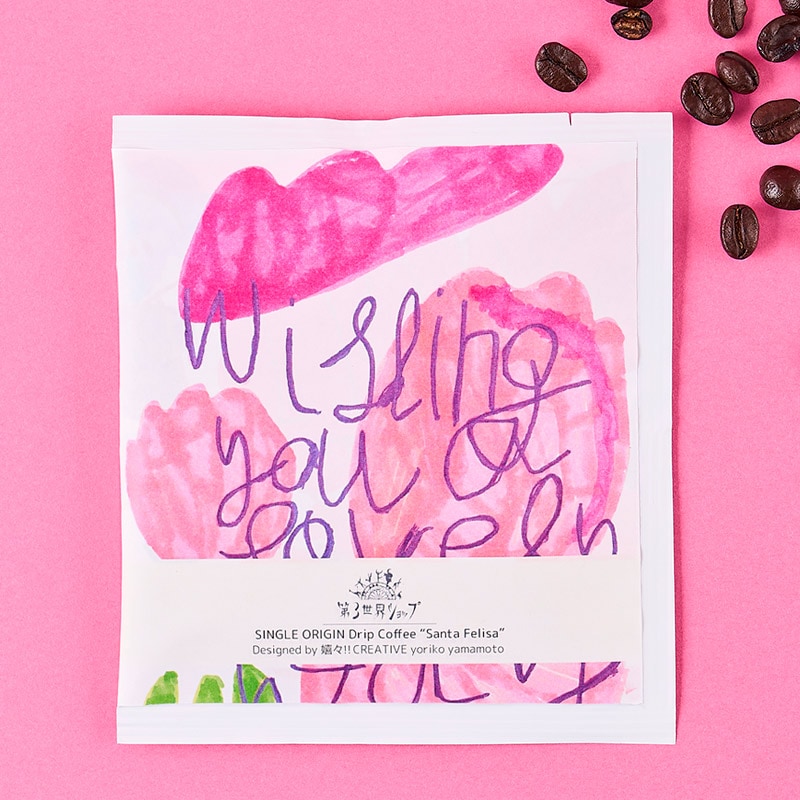 Wishing
you a
lovely
第3世界ショップ
SINGLE ORIGIN Drip Coffee “Santa Felisa”
Designed by 嬉々!! CREATIVE yoriko yamamoto